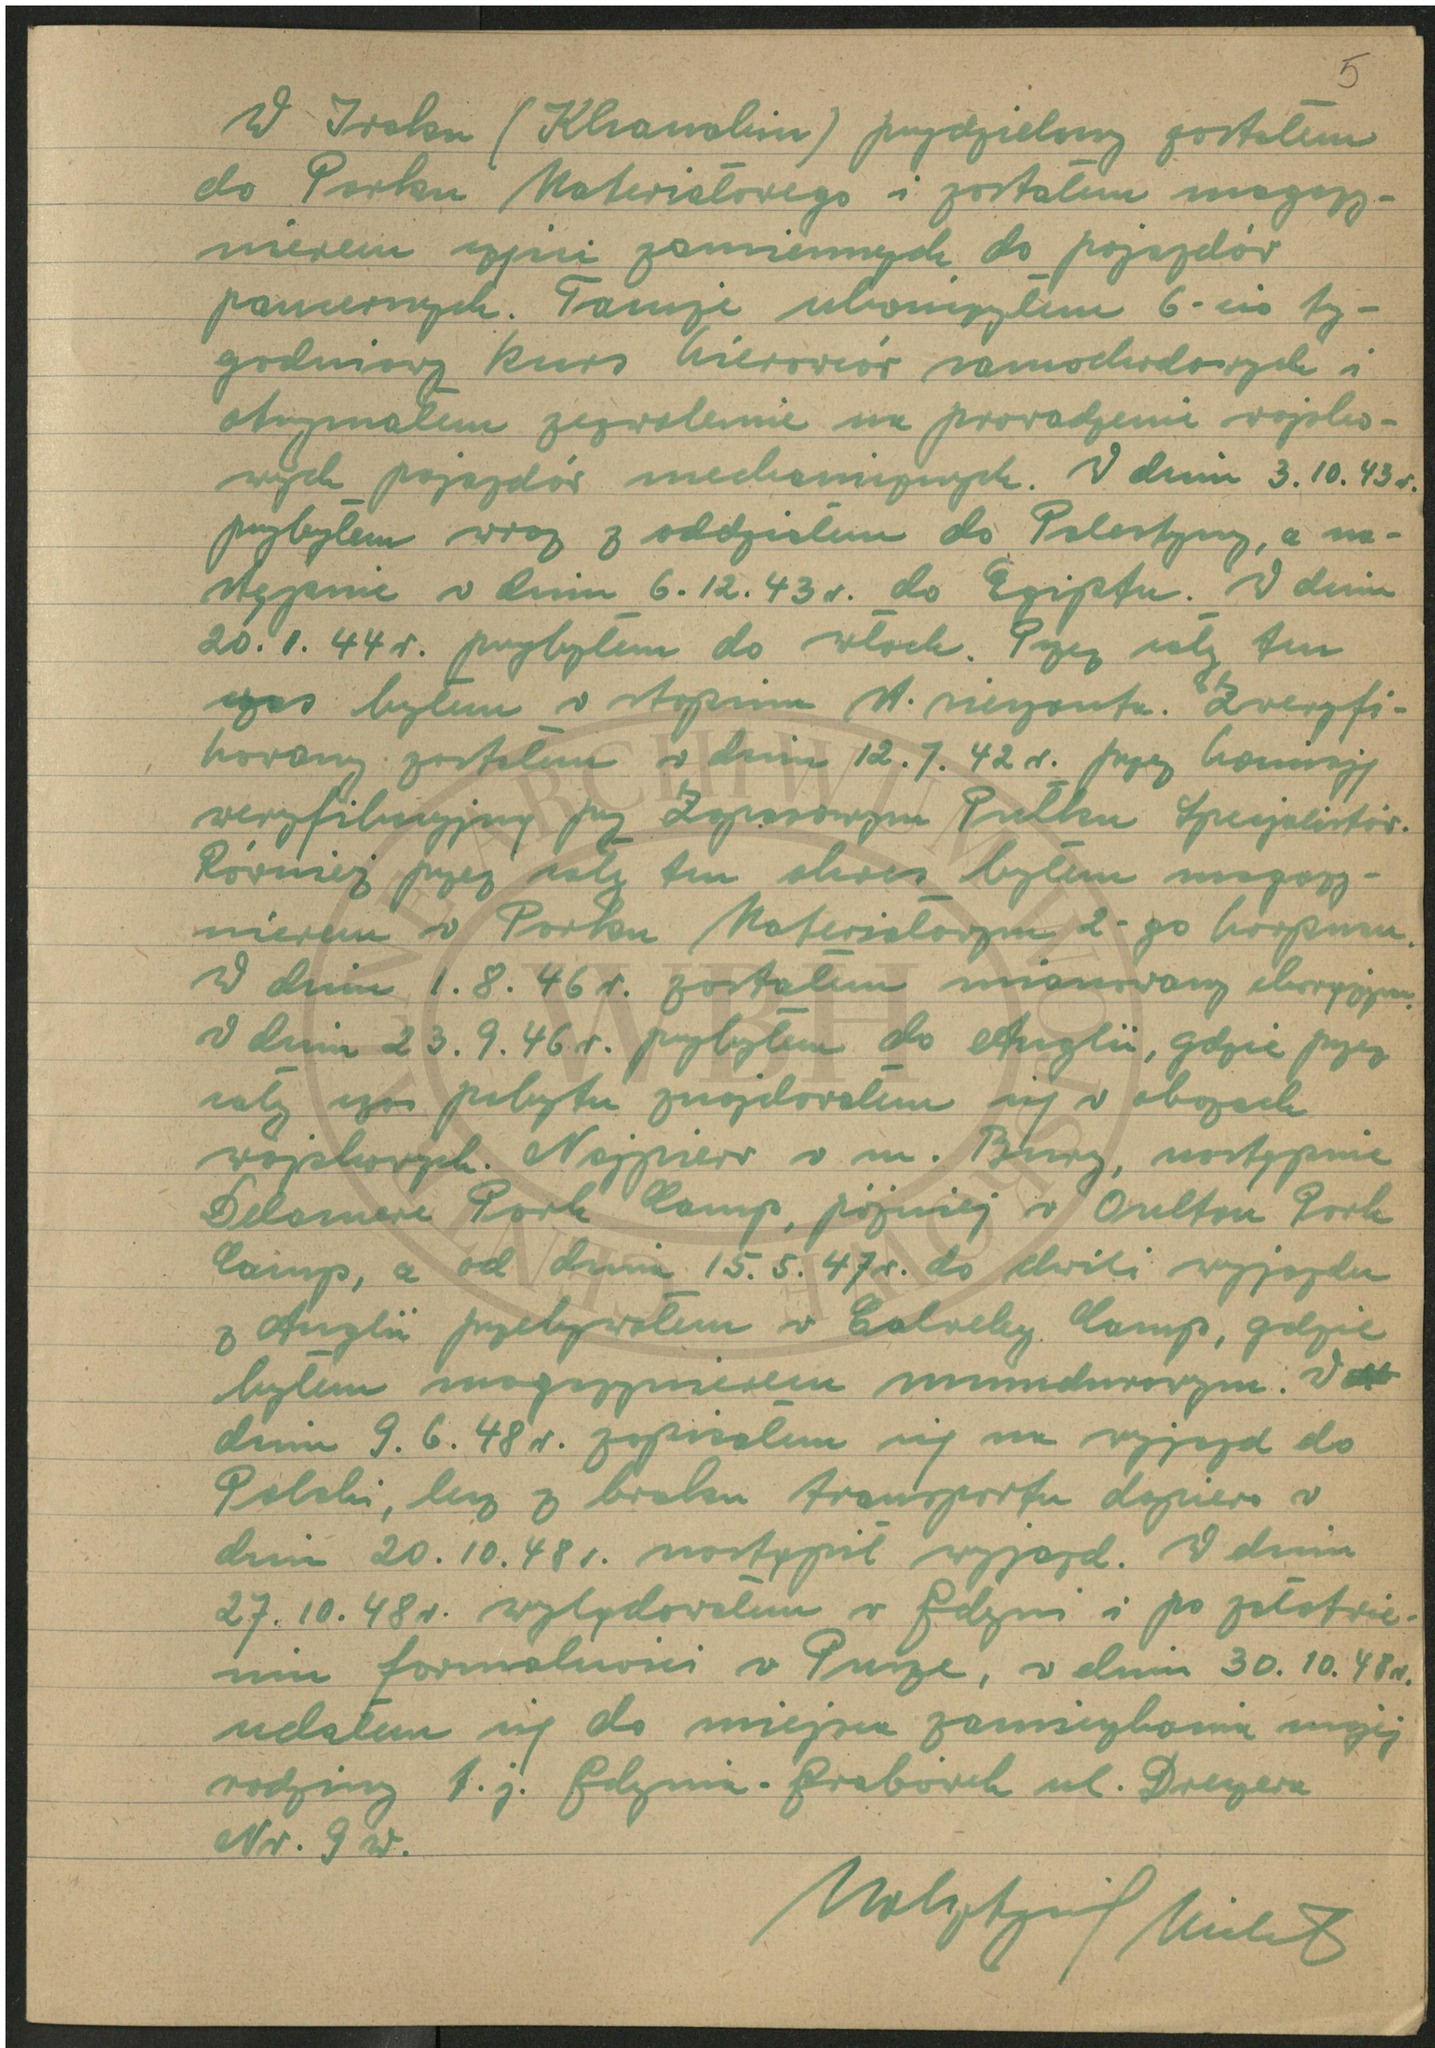 5
W Iraku (Khanakin) przydzielony zostałem
do Parku Materiałowego i zostałem magazy-
nierem części zamiennych do pojazdów
pancernych. Tamże ukończyłem 6-cio ty-
godniowy kurs kierowców samochodowych i
otrzymałem zezwolenie na prowadzenie wojsko-
wych pojazdów mechanicznych. W dniu 3.10.43r.
przybyłem wraz z oddziałem do Palestyny, a na-
stępnie w dniu 6.12.43r. do Egiptu. W dniu
20.1.44r. przybyłem do Włoch. Przez cały ten
czas byłem w stopniu st. sierżanta. Zweryfi-
kowany zostałem w dniu 12.7.42r. przez komisję
weryfikacyjną przy Zapasowym Pułku Specjalistów.
Również przez cały ten okres byłem magazy-
nierem w Parku Materiałowym 2-go korpusu.
W dniu 1.8.46r. zostałem mianowany chorążym.
W dniu 23.9.46r. przybyłem do Anglii, gdzie przez
cały czas pobytu znajdowałem się w obozach
wojskowych. Najpierw w m. Bury, następnie
Delamere Park Camp, później w Oulton Park
Camp, a od dnia 15.5.47r. do chwili wyjazdu
z Anglii przebywałem w Calveley Camp, gdzie
byłem magazynierem mundurowym. W
dniu 9.6.48r. zapisałem się na wyjazd do
Polski, lecz z braku transportu dopiero w
dniu 20.10.48r. nastąpił wyjazd. W dniu
27.10.48r. wylądowałem w Gdyni i po załatwie-
niu formalności w Pucze, w dniu 30.10.48r.
udałem się do miejsca zamieszkania mojej
rodziny t.j. Gdynia-Grabówek ul. Dreszera
Nr. 9 w.
CENTRALNE ARCHIWUM WOJSKOWE
WBH